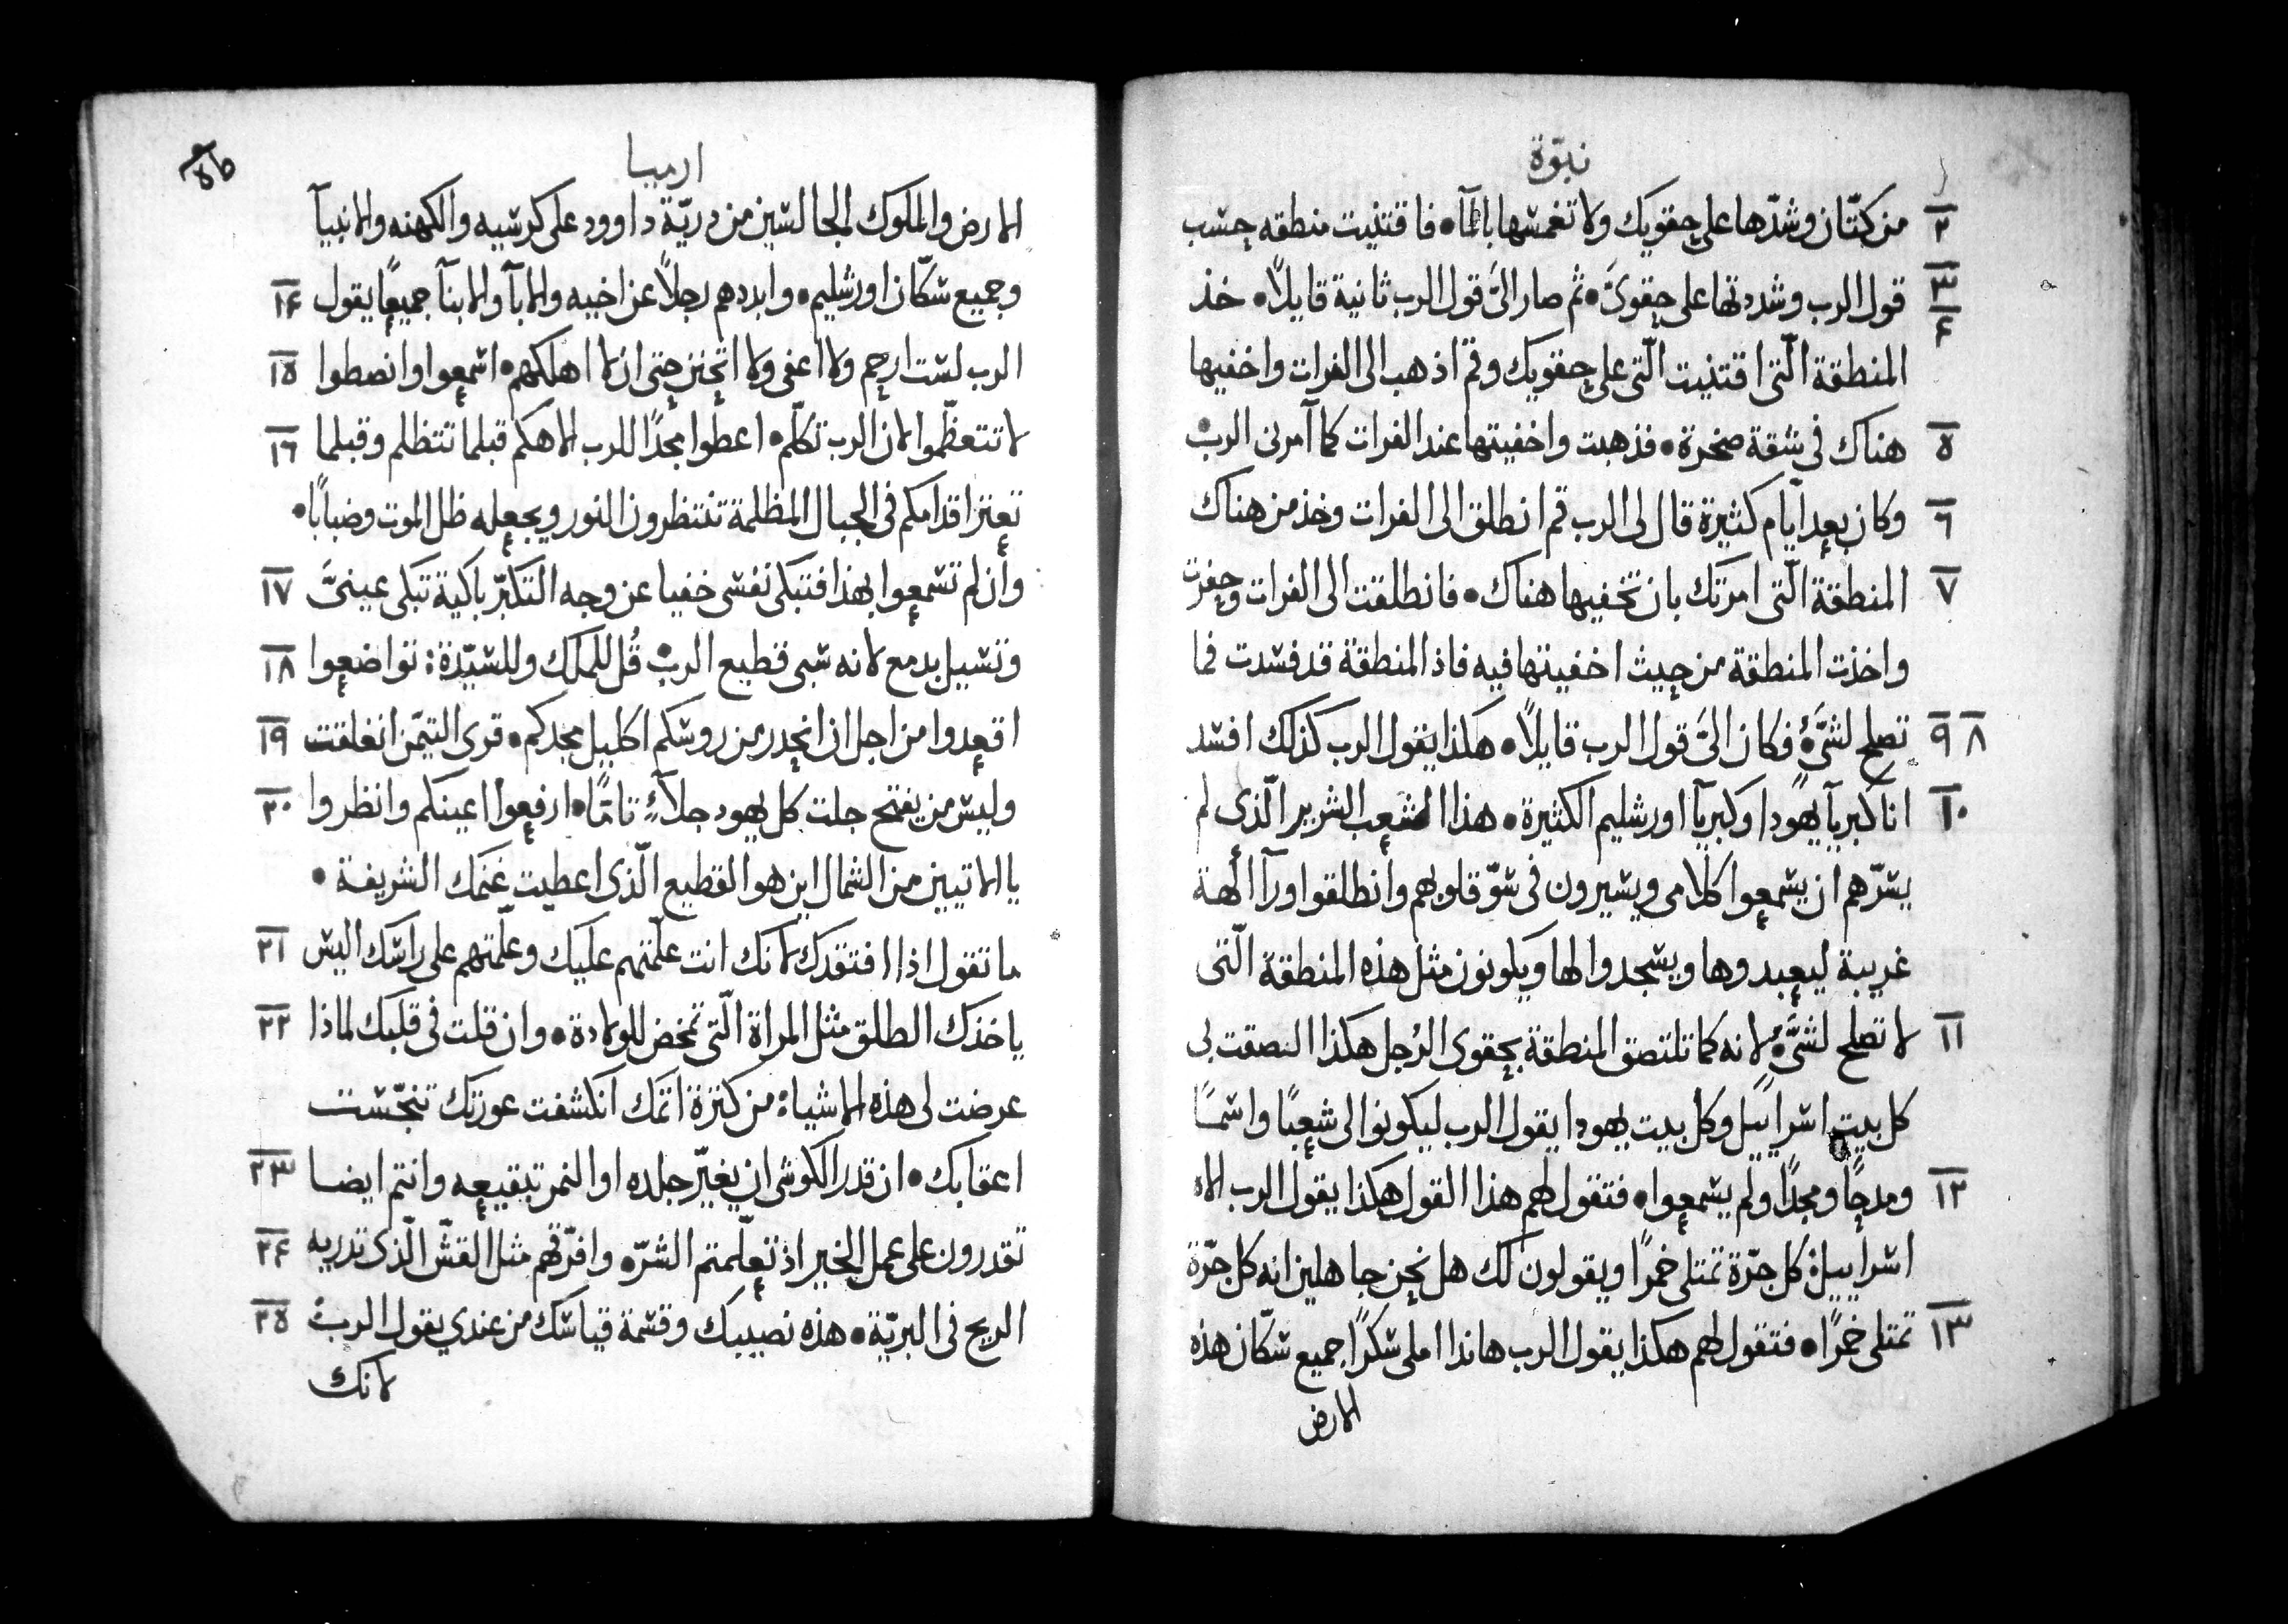 نبوّة
٢ من كتّان وشدّها على حقويك ولا تغمسها بالمآ • فاقتنيت منطقه حسب
٣ ٤ قول الرب وشددتها على حقويَّ • ثم صار اليَّ قول الرب ثانية قايلاً • خذ
المنطقة الّتى اقتنيت الّتى على حقويك وقم اذهب الى الفرات واخفيها
٥ هناك فى شقة صخرة • فذهبت واخفيتها عند الفرات كما آمرنى الرب
٦ وكان بعد ايّام كثيرة قال لى الرب قم انطلق الى الفرات وخذ من هناك
٧ المنطقة الّتى امرتك بان تخفيها هناك • فانطلقت الى الفرات وحفرت
واخذت المنطقة من حيث اخفيتها فيه فاذ المنطقة قد فسدت فما
٨ ٩ تصلح لشَىءٍ فكان اليَّ قول الرب قايلاً • هكذا يقول الرب كذلك افسد
١٠ انا كبريآ يهودا وكبريآ اورشليم الكثيرة • هذا الشعب الشرير الّذى لم
يسرّهم ان يسمعوا كلامى ويسيرون فى سوّ قلوبهم وانطلقوا ورآ الهة
غريبة ليعبدوها ويسجدوا لها ويكونون مثل هذه المنطقة الّتى
١١ لا تصلح لشىءٍ لانه كما تلتصق المنطقة بحقوى الرُجل هكذا التصقت بى
كل بيت اسراييل وكل بيت يهودا يقول الرب ليكونوا لى شعبًا واسمًا
١٢ ومدحًا ومجدًا ولم يسمعوا • فتقول لهم هذا القول هكذا يقول الرب الاه
اسراييل كل جرّة تمتلى خمرًا ويقولون لك هل نحن جاهلين انه كل جرّة
١٣ تمتلى خمرًا • فتقول لهم هكذا يقول الرب هانذا املى سكرًا جميع سكّان هذه
الارض
ارميا
الارض والملوك الجالسين من دريّة داوود على كرسيه والكهنه والانبيآ
وجميع سكّان اورشليم • وابددهم رجلاً عن اخيه والابآ والابنآ جميعًا يقول ١٤
الرب لست ارحم ولا اعفى ولا اتحنن حتى ان لا اهلكهم • اسمعوا وانصطوا ١٥
لا تتعظّموا لان الرب تكلّم • اعطوا مجدًا للرب الاهكم قبلما تتظلم وقبلما ١٦
تعنز اقدامكم فى الجبال المظلمة تنتظرون النور ويجعله ظل الموت وضبابًا •
وان لم تسمعوا بهذا فتبكى نفسى خفيا عن وجه التكبّر باكية تبكى عينىَّ ١٧
وتسيل بدمع لانه سبى قطيع الرب قُل للملك وللسيّدة : تواضعوا ١٨
اقعدوا من اجل ان انحدر من روسكم اكليل مجدكم • قرى التيمّن انغلقت ١٩
وليس من يفتح جلت كل يهود جلآءً تامًا • ارفعوا اعينكم وانظروا ٢٠
يا الاتيين من الشمال اين هو القطيع الّذى اعطيت غنمك الشريفة •
ما تقول اذا افتقدك لانك انت علّمتهم عليك وعلّمتهم على راسك اليس ٢١
ياخذك الطلق مثل المراة الّتى تمخض للولادة • وان قلت فى قلبك لماذا ٢٢
عرضت لى هذه الاشياء من كثرة اثمك انكشفت عورتك تنجّست
اعقابك • ان قدر الكوشى ان يغيّر جلده او النمر تبقيعه وانتم ايضا ٢٣
تقدرون على عمل الخير اذ تعلّمتم الشرّ • وافرّقهم مثل القشّ الّذى تدريه ٢٤
الريح فى البريّة • هذه نصيبك وقسمة قياسك من عندي يقول الرب ٢٥
لانك